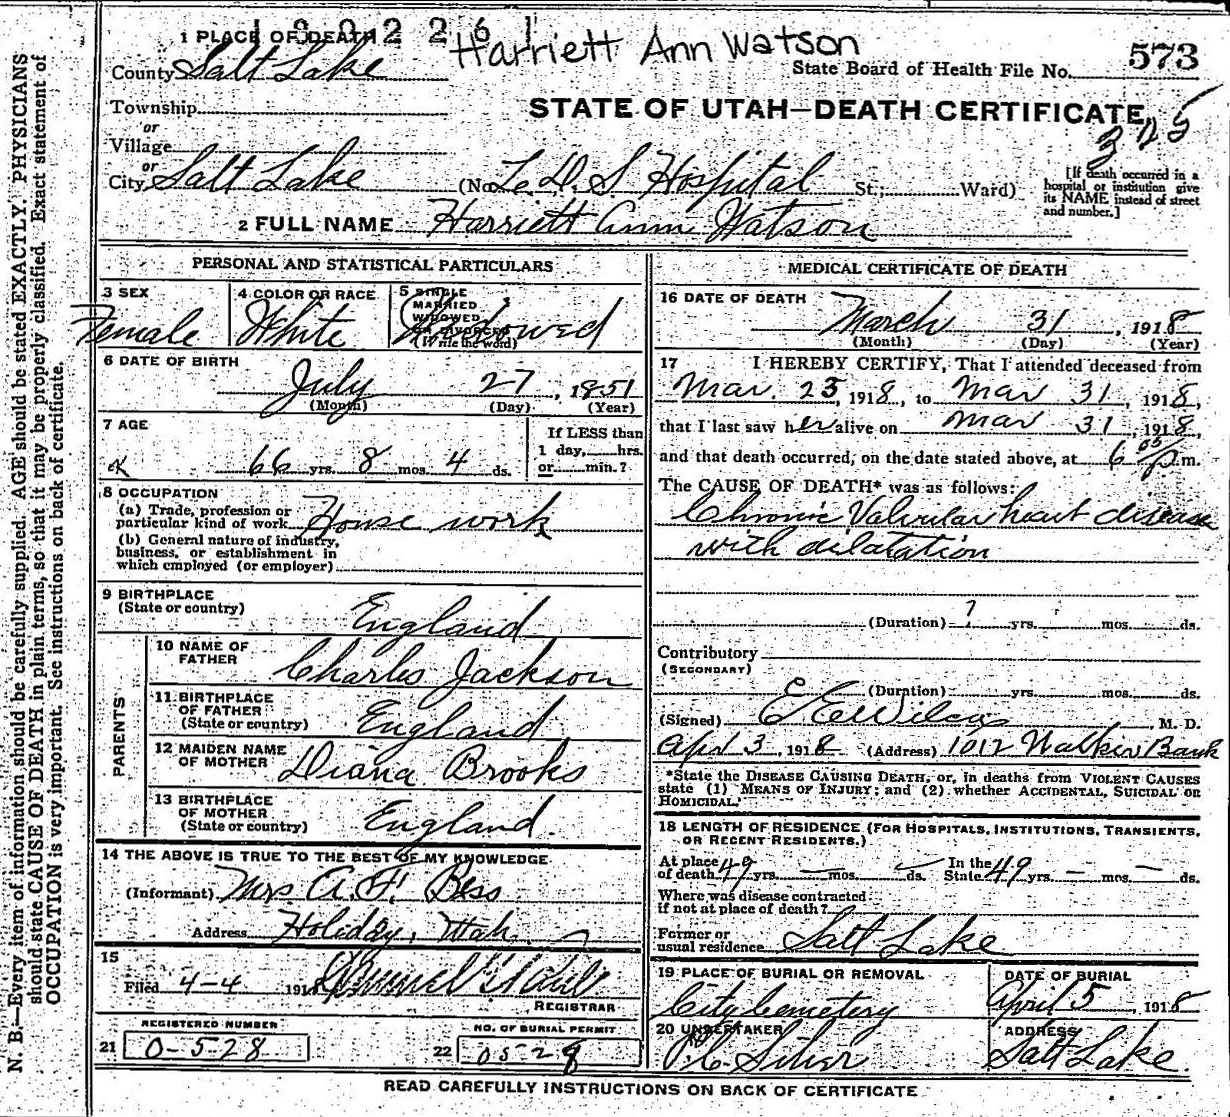 1 3 0 2 2 6 1
Harriett Ann Watson
1 PLACE OF DEATH
County Salt Lake
State Board of Health File No. 573
Township
or
Village
or
City Salt Lake
STATE OF UTAH—DEATH CERTIFICATE
325
(No. L. D. S Hospital St.; Ward)
[If death occurred in a
hospital or institution give
its NAME instead of street
and number.]
2 FULL NAME Harriett Ann Watson
PERSONAL AND STATISTICAL PARTICULARS
3 SEX
Female
4 COLOR OR RACE
White
5 SINGLE
MARRIED
WIDOWED
OR DIVORCED
(Write the word)
Widowed
6 DATE OF BIRTH
July 27, 1851
(Month) (Day) (Year)
7 AGE
66 yrs. 8 mos. 4 ds.
If LESS than
1 day, hrs.
or min.?
8 OCCUPATION
(a) Trade, profession or
particular kind of work House work
(b) General nature of industry,
business, or establishment in
which employed (or employer)
9 BIRTHPLACE
(State or country) England
PARENTS
10 NAME OF
FATHER Charles Jackson
11 BIRTHPLACE
OF FATHER
(State or country) England
12 MAIDEN NAME
OF MOTHER Diana Brooks
13 BIRTHPLACE
OF MOTHER
(State or country) England
14 THE ABOVE IS TRUE TO THE BEST OF MY KNOWLEDGE
(Informant) Mrs. A. F. Bess
Address Holiday, Utah
15
Filed 4-4 1918
REGISTRAR
REGISTERED NUMBER
21 0-528
NO. OF BURIAL PERMIT
22 0528
MEDICAL CERTIFICATE OF DEATH
16 DATE OF DEATH
March 31, 1918
(Month) (Day) (Year)
17 I HEREBY CERTIFY, That I attended deceased from
Mar. 23, 1918, to Mar 31, 1918,
that I last saw her alive on Mar 31, 1918,
and that death occurred, on the date stated above, at 6 05 p m.
The CAUSE OF DEATH* was as follows:
Chronic Valvular heart disease
with dilatation
(Duration) ? yrs. mos. ds.
Contributory
(SECONDARY)
(Duration) yrs. mos. ds.
(Signed) E E Wilcox, M. D.
Apr 3, 1918 (Address) 1012 Walker Bank
*State the DISEASE CAUSING DEATH, or, in deaths from VIOLENT CAUSES
state (1) MEANS OF INJURY; and (2) whether ACCIDENTAL, SUICIDAL OR
HOMICIDAL.
18 LENGTH OF RESIDENCE (FOR HOSPITALS, INSTITUTIONS, TRANSIENTS,
OR RECENT RESIDENTS.)
At place
of death 49 yrs. — mos. — ds. In the
State 49 yrs. — mos. — ds.
Where was disease contracted
if not at place of death?
Former or
usual residence Salt Lake
19 PLACE OF BURIAL OR REMOVAL
City Cemetery
DATE OF BURIAL
April 5, 1918
20 UNDERTAKER
ADDRESS
Salt Lake
READ CAREFULLY INSTRUCTIONS ON BACK OF CERTIFICATE
N. B.—Every item of information should be carefully supplied. AGE should be stated EXACTLY. PHYSICIANS
should state CAUSE OF DEATH in plain terms, so that it may be properly classified. Exact statement of
OCCUPATION is very important. See instructions on back of certificate.